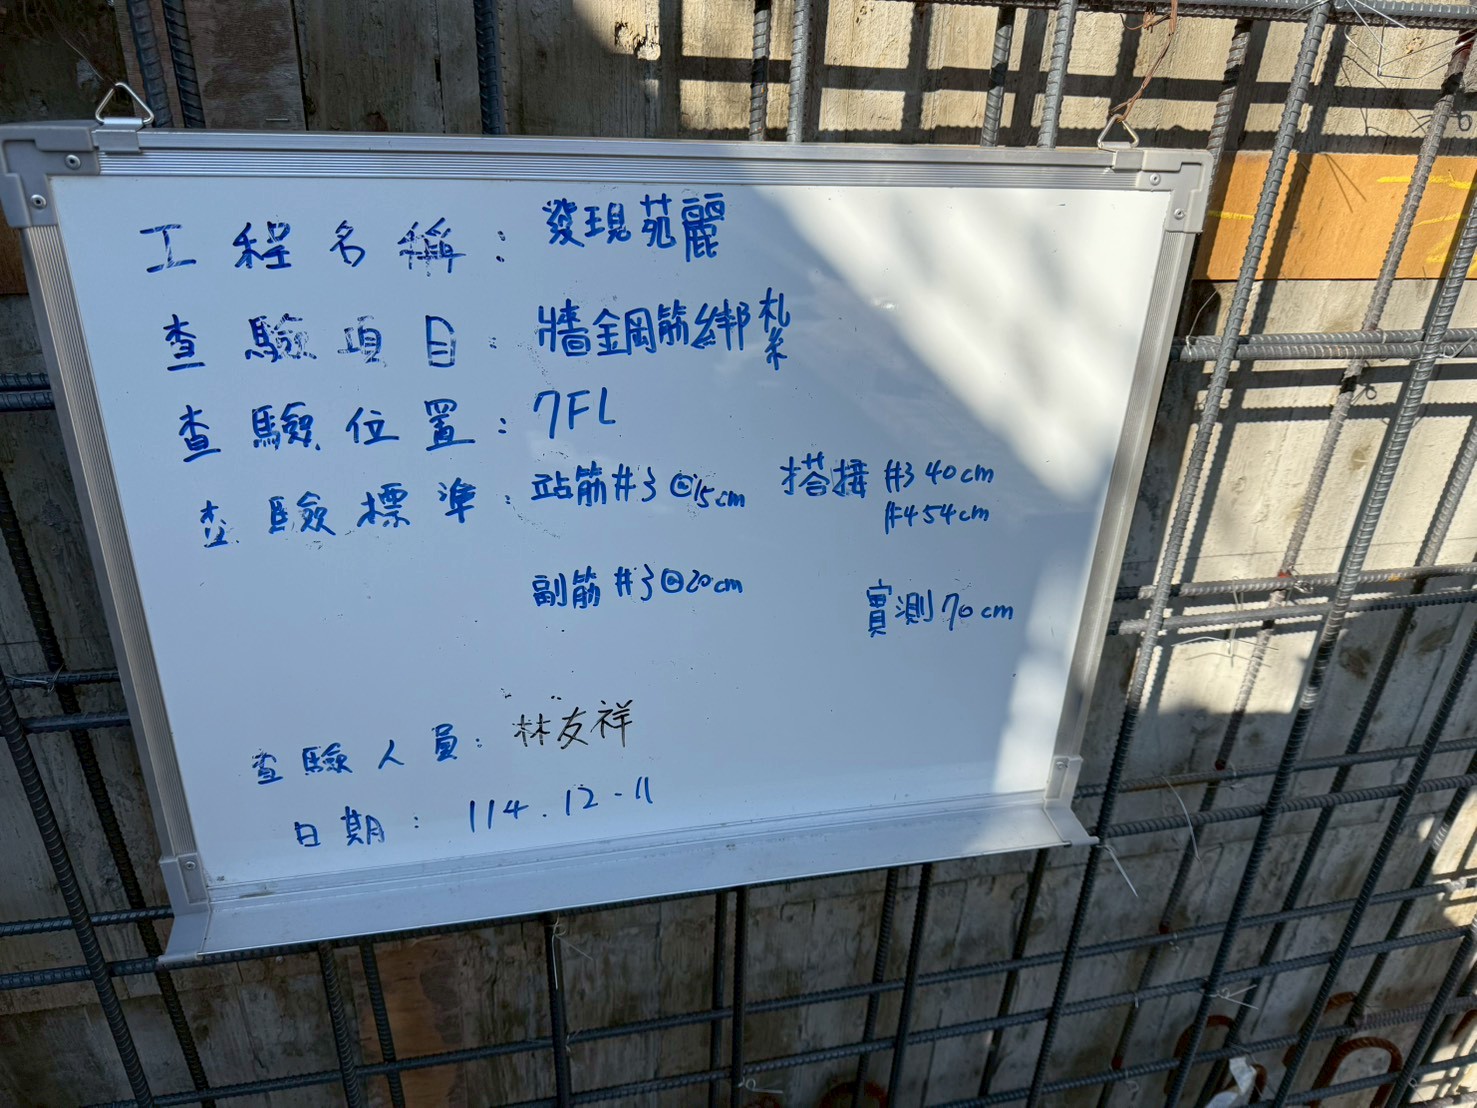 工程名稱：發現苑麗
查驗項目：牆鋼筋綁紮
查驗位置：7FL
查驗標準：站筋#3@15cm 搭接 #3 40cm
#4 54cm
副筋#3@20cm 實測70cm
查驗人員：林友祥
日期：114.12.11